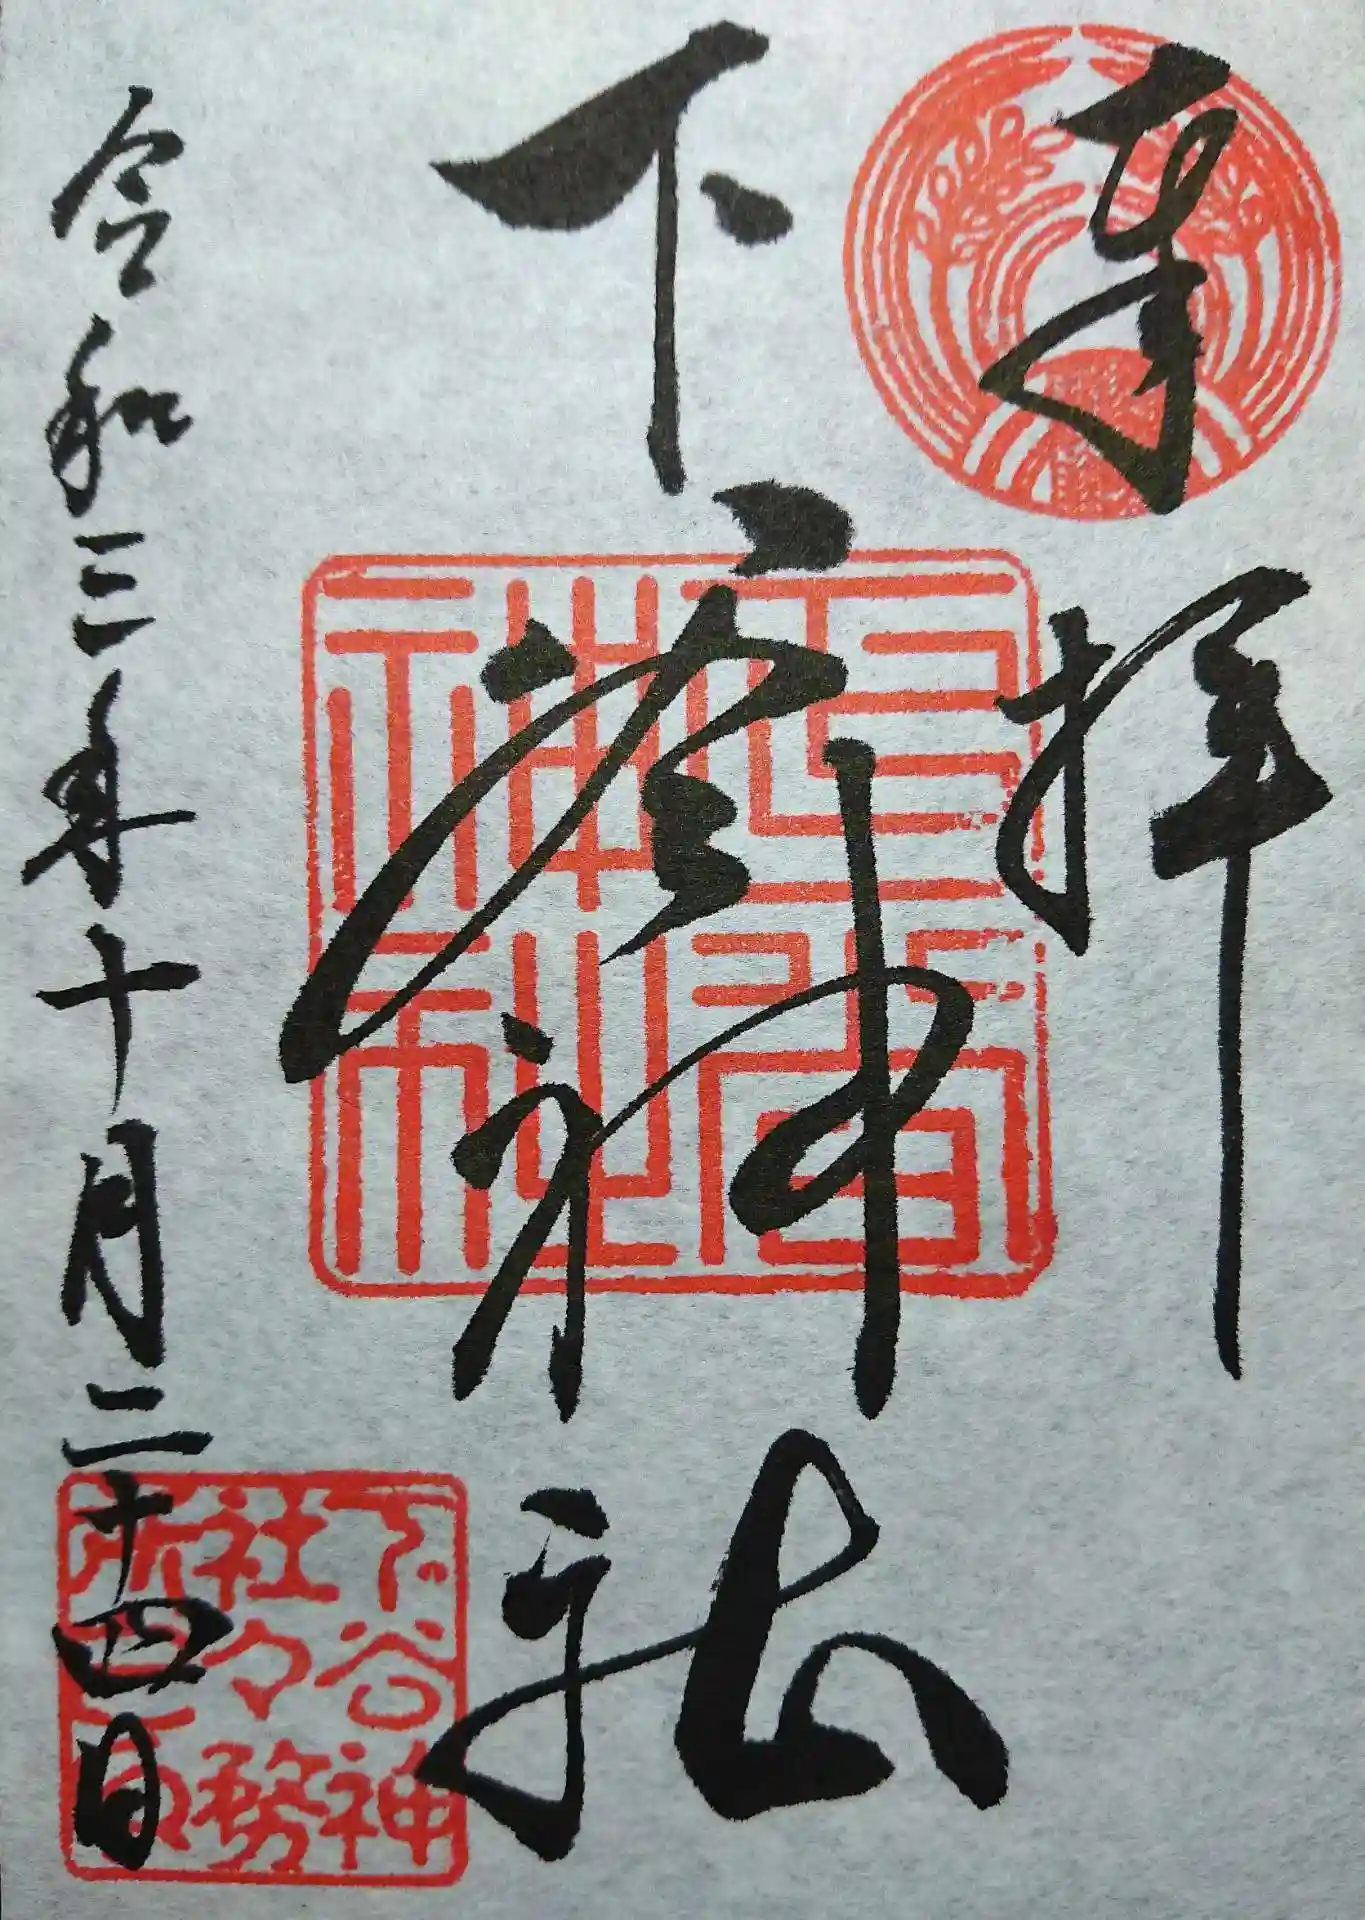 奉拝
下谷神社
令和三年十月二十四日
下谷神社
下谷神
社々務
所之印